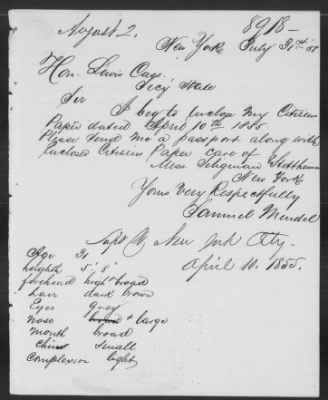 August 2.
8918—
New York July 31st 58
Hon. Lewis Cass.
Secy State
Sir
I beg to inclose my Citizen
Paper dated April 10th 1855
Please send me a passport along with
inclosed Citizen Paper care of
Mess. Seligman & Stettheimer
New York
Yours Very Respectfully
Samuel Mendel
New York City.
April 10. 1855.
Age 31
heighth 5' 8"
forehead high & broad
hair dark brown
Eyes grey
nose broad & large
mouth broad
Chin small
Complexion light